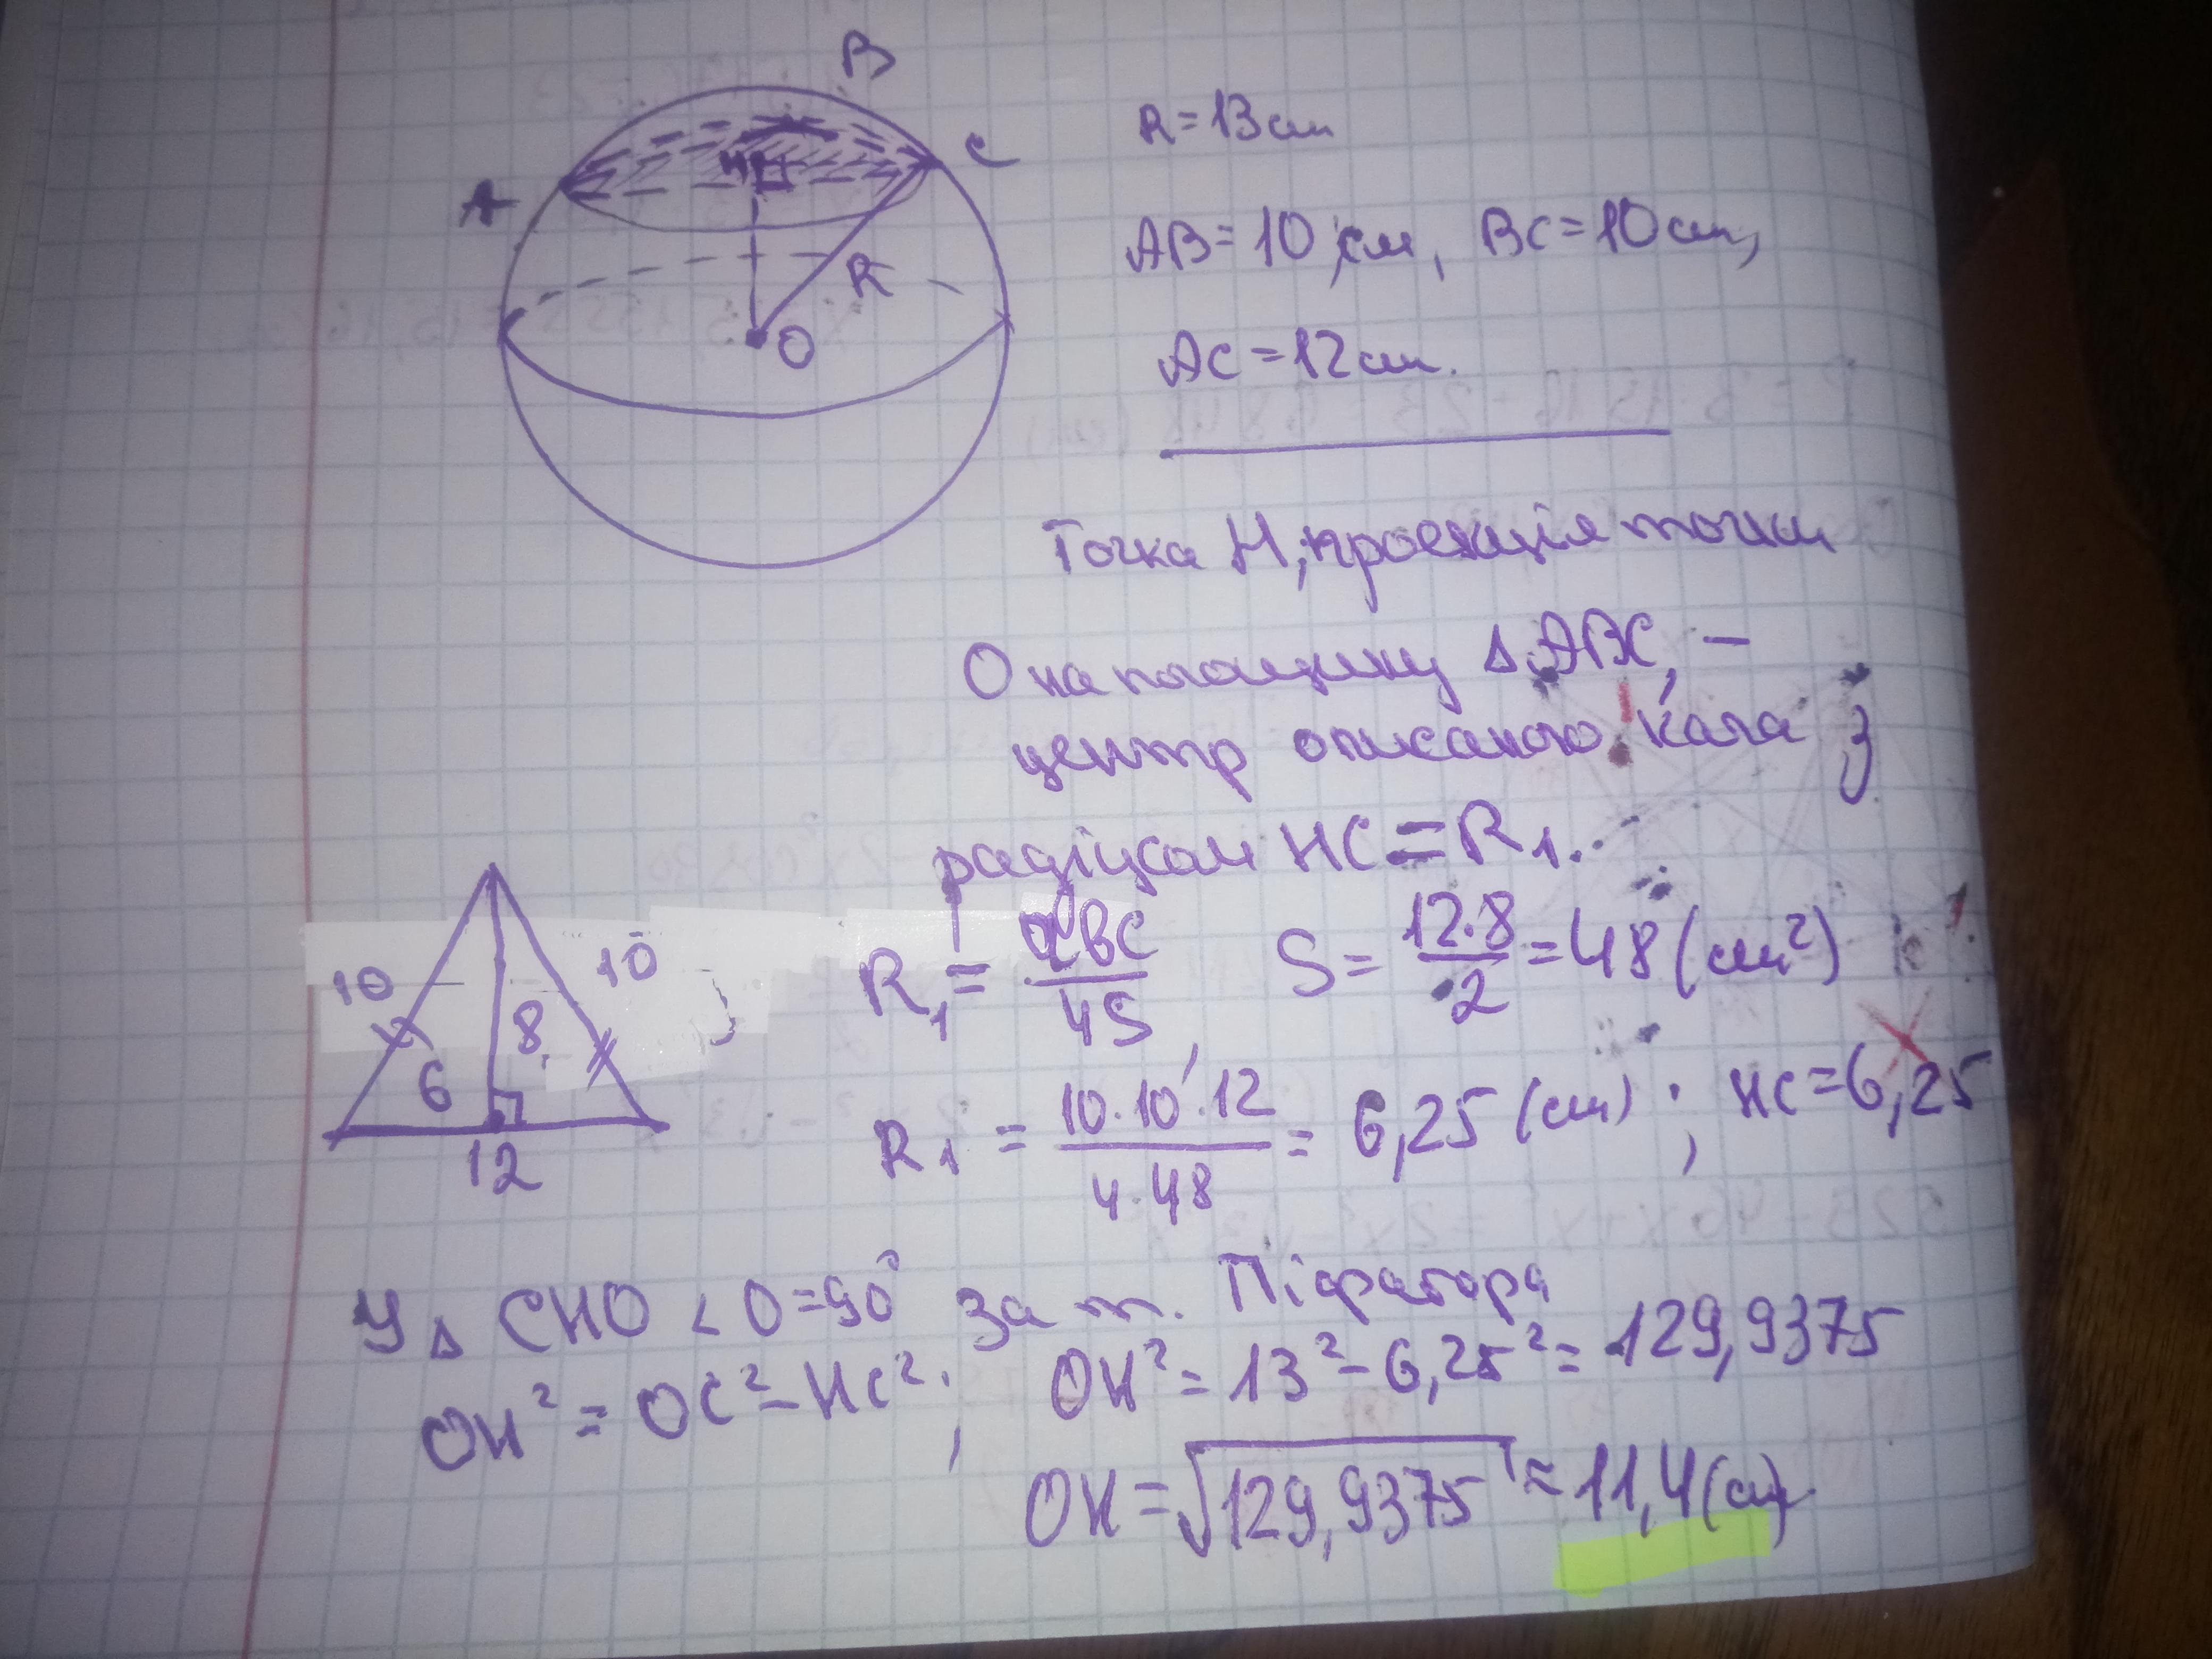 B
C
A
H
R
O
R=13см
AB=10 см, BC=10см,
AC=12см.
Точка H, проекція точки
O на площину Δ ABC, –
центр описаного кола з
радіусом HC=R₁.
R₁ = авс/4S, S = 12·8/2 = 48 (см²)
10 10
6 8
12
R₁ = 10·10·12/4·48 = 6,25 (см); HC=6,25
У Δ CHO <O=90° за т. Піфагора
OH² = OC² – HC²; OH² = 13² – 6,25² = 129,9375
OH = √129,9375 ≈ 11,4 (см).